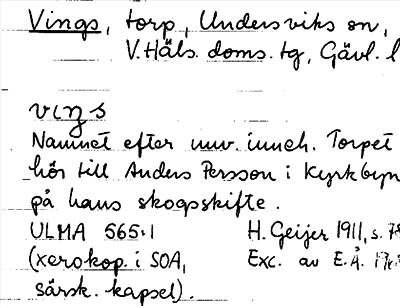 Vings, torp, Undersviks sn,
V. Häls. doms. tg, Gävl. l
vıŋs
Namnet efter nuv. inneh. Torpet
hör till Anders Persson i Kyrkbyn
på hans skogsskifte.
ULMA 565:1 H. Geijer 1911, s. 78
(xerokop. i SOA, Exc. av E. Å.
särsk. kapsel).